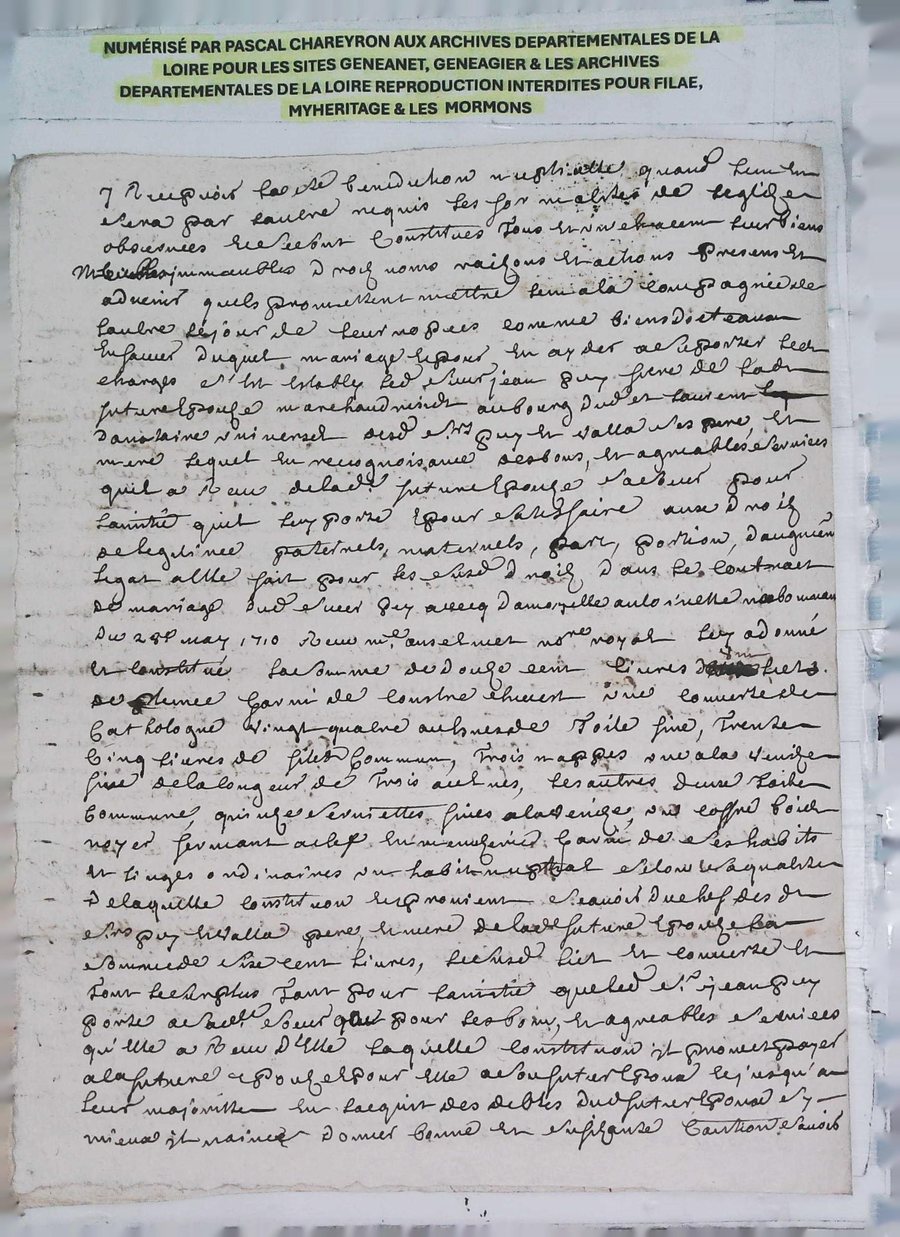 NUMÉRISÉ PAR PASCAL CHAREYRON AUX ARCHIVES DEPARTEMENTALES DE LA
LOIRE POUR LES SITES GENEANET, GENEAGIER & LES ARCHIVES
DEPARTEMENTALES DE LA LOIRE REPRODUCTION INTERDITES POUR FILAE,
MYHERITAGE & LES MORMONS
y Recepvoir lad benediction nuptialle quand lun en
sera par lautre requis les formalites de leglize
observees Constitues Tous et leurs biens
immeubles droitz noms raizons et actions presens et
advenir quels promettent mettre a la compagnie de
lautre sejour de leur nopces comme biens
En faveur duquel mariage Et pour En ayder a suporter les
charges s'Est Estably led sieur jean puy frere de lad
future Epouze marchand au bourg dud st laurent
universel desd srs puy et valla ses pere, et
mere lequel En recognoisance des bons, et agreables services
quil a Receu delad future Epouze sa soeur pour
lamitié quil luy porte Et pour satisfaire aux droitz
de legitime paternels, maternels, part, portion, daugment
legat a Elle fait pour les susd droitz dans le Contract
de mariage dud sieur puy avecq damoyselle antoinette
Du 28e may 1710 Receu me anselmet nore royal luy a donné
et Constitué la somme de douze cent livres lict
de plume garni de coustre chevet une couverte de
Cathologne vingt quatre aulnes de Toile fine, Trente
Cinq livres de fillet Commun, Trois nappes une a la venize
fine de la longeur de Trois aulnes, les autres deux Toile
Commune, quinze serviettes fines a la venize, un coffre bois
noyer fermant a clef En menuzerie garni de ses habits
et linges ordinaires un habit nuptial selon sa qualité
De laquelle constitution Et provient scavoir du chef desd
srs puy Et valla pere, et mere de lad future Epouze la
somme de size cent livres, le susd lict et couverte et
Tout le surplus Tant pour lamitié que led sr jean puy
porte a lad soeur que pour les bons, et agreables services
qu'Elle a Receu d'Elle laquelle constitution jl promet payer
a la future Epouze Et pour Elle a son futur Epoux jusqu'a
leur majorité En lacquit des debtes dud futur Epoux sy
mieux jl n'aime donner bonne et sufizante Caution scavoir